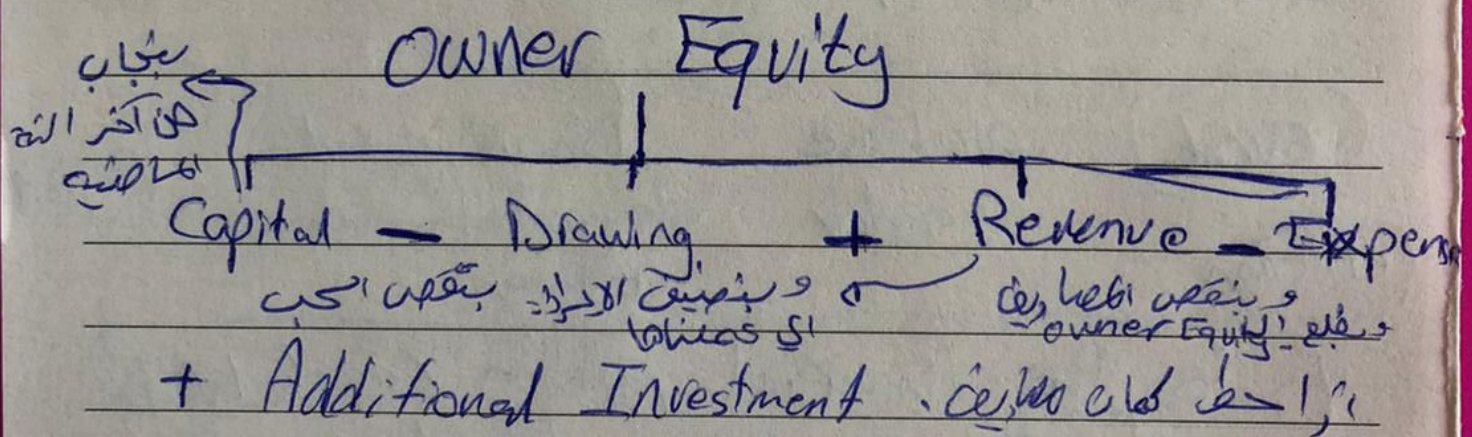 Owner Equity
بنجاب
من آخر السنة
الماضية
Capital - Drawing + Revenue - Expens
بنقص السحب
وبنضيف الإيراد
اي خدمناها
وبنقص المصاريف
وبطلع الـ owner Equity
+ Additional Investment.